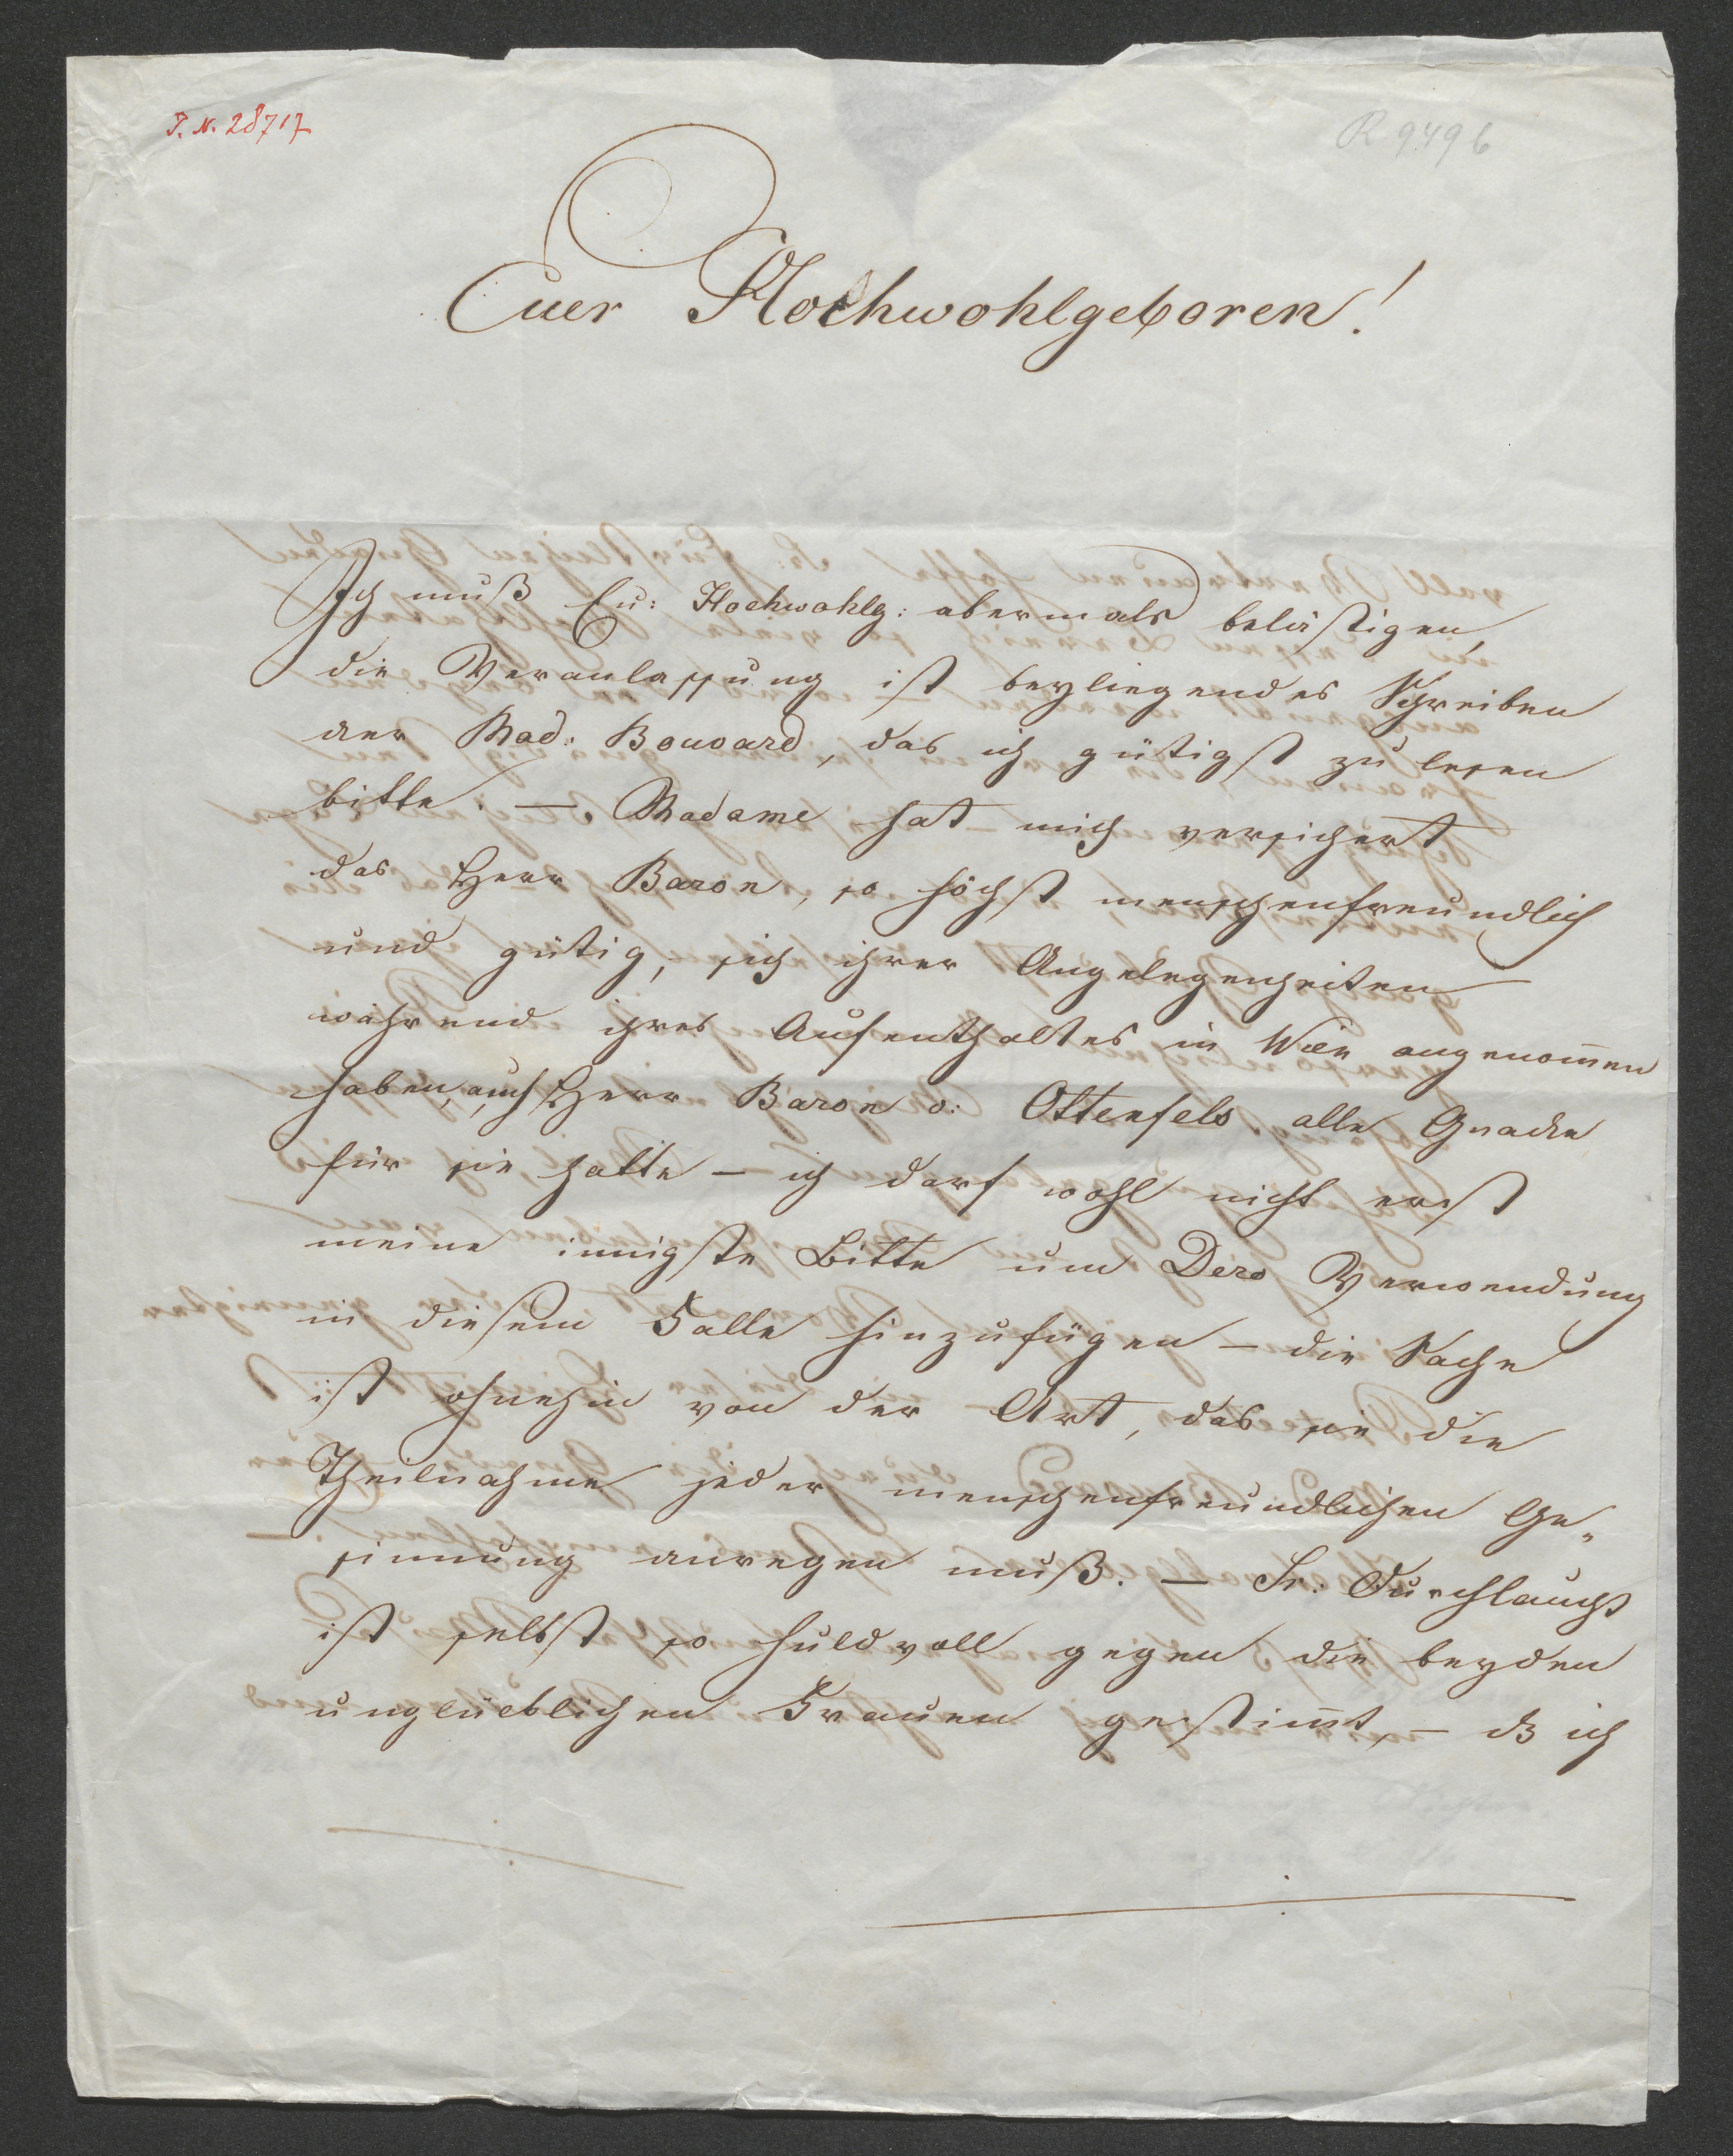 I. N. 28717
R 9496
Euer Hochwohlgeboren!
Ich muß Eu: Hochwohlg: abermals belästigen,
die Veranlassung ist beyliegendes Schreiben
der Mad: Bouvard, das ich gütigst zu lesen
bitte. — Madame hat mich versichert
das Herr Baron, so höchst menschenfreundlich
und gütig, sich ihrer Angelegenheiten
während ihres Aufenthaltes in Wien angenom̄en
haben, auch Herr Baron v: Ottenfels alle Gnade
für sie hatte — ich darf wohl nicht erst
meine innigste Bitte um Dero Verwendung
in diesem Falle hinzufügen — die Sache
ist ohnehin von der Art, das sie die
Theilnahme jeder menschenfreundlichen Ge„
sinnung anregen muß. — Sr: Durchlaucht
ist selbst so huldvoll gegen die beyden
unglücklichen Frauen gestim̄t, — dß ich